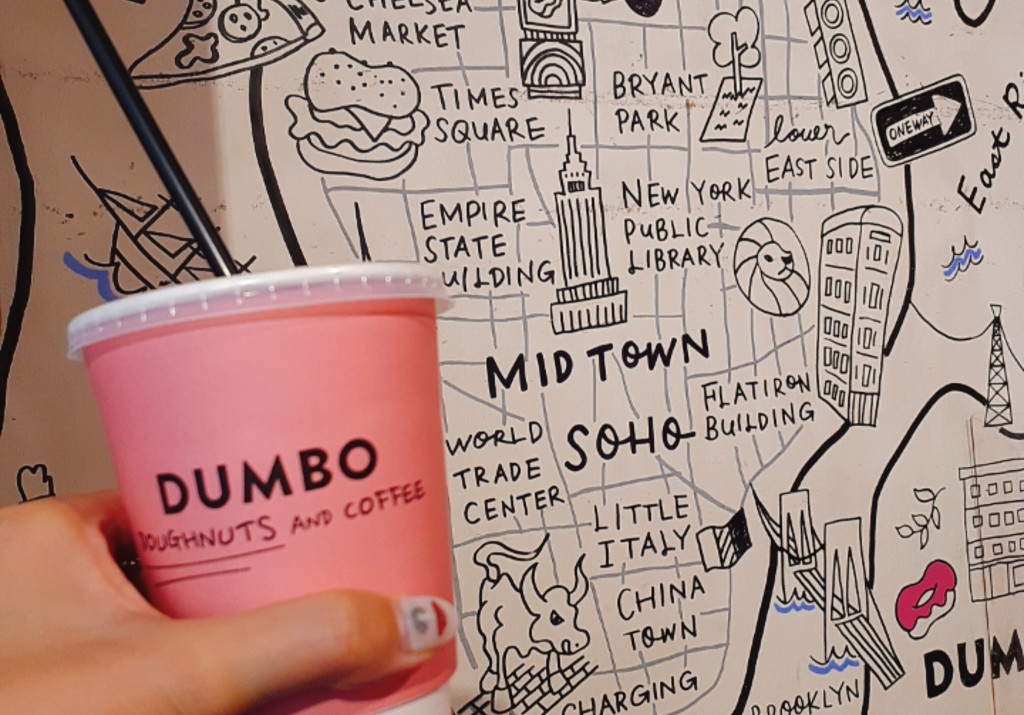 CHELSEA
MARKET
TIMES
SQUARE
BRYANT
PARK
lower
EAST SIDE
ONEWAY
East
EMPIRE
STATE
BUILDING
NEW YORK
PUBLIC
LIBRARY
MID TOWN
SOHO
FLATIRON
BUILDING
WORLD
TRADE
CENTER
LITTLE
ITALY
CHINA
TOWN
CHARGING
BROOKLYN
DUM
DUMBO
DOUGHNUTS AND COFFEE